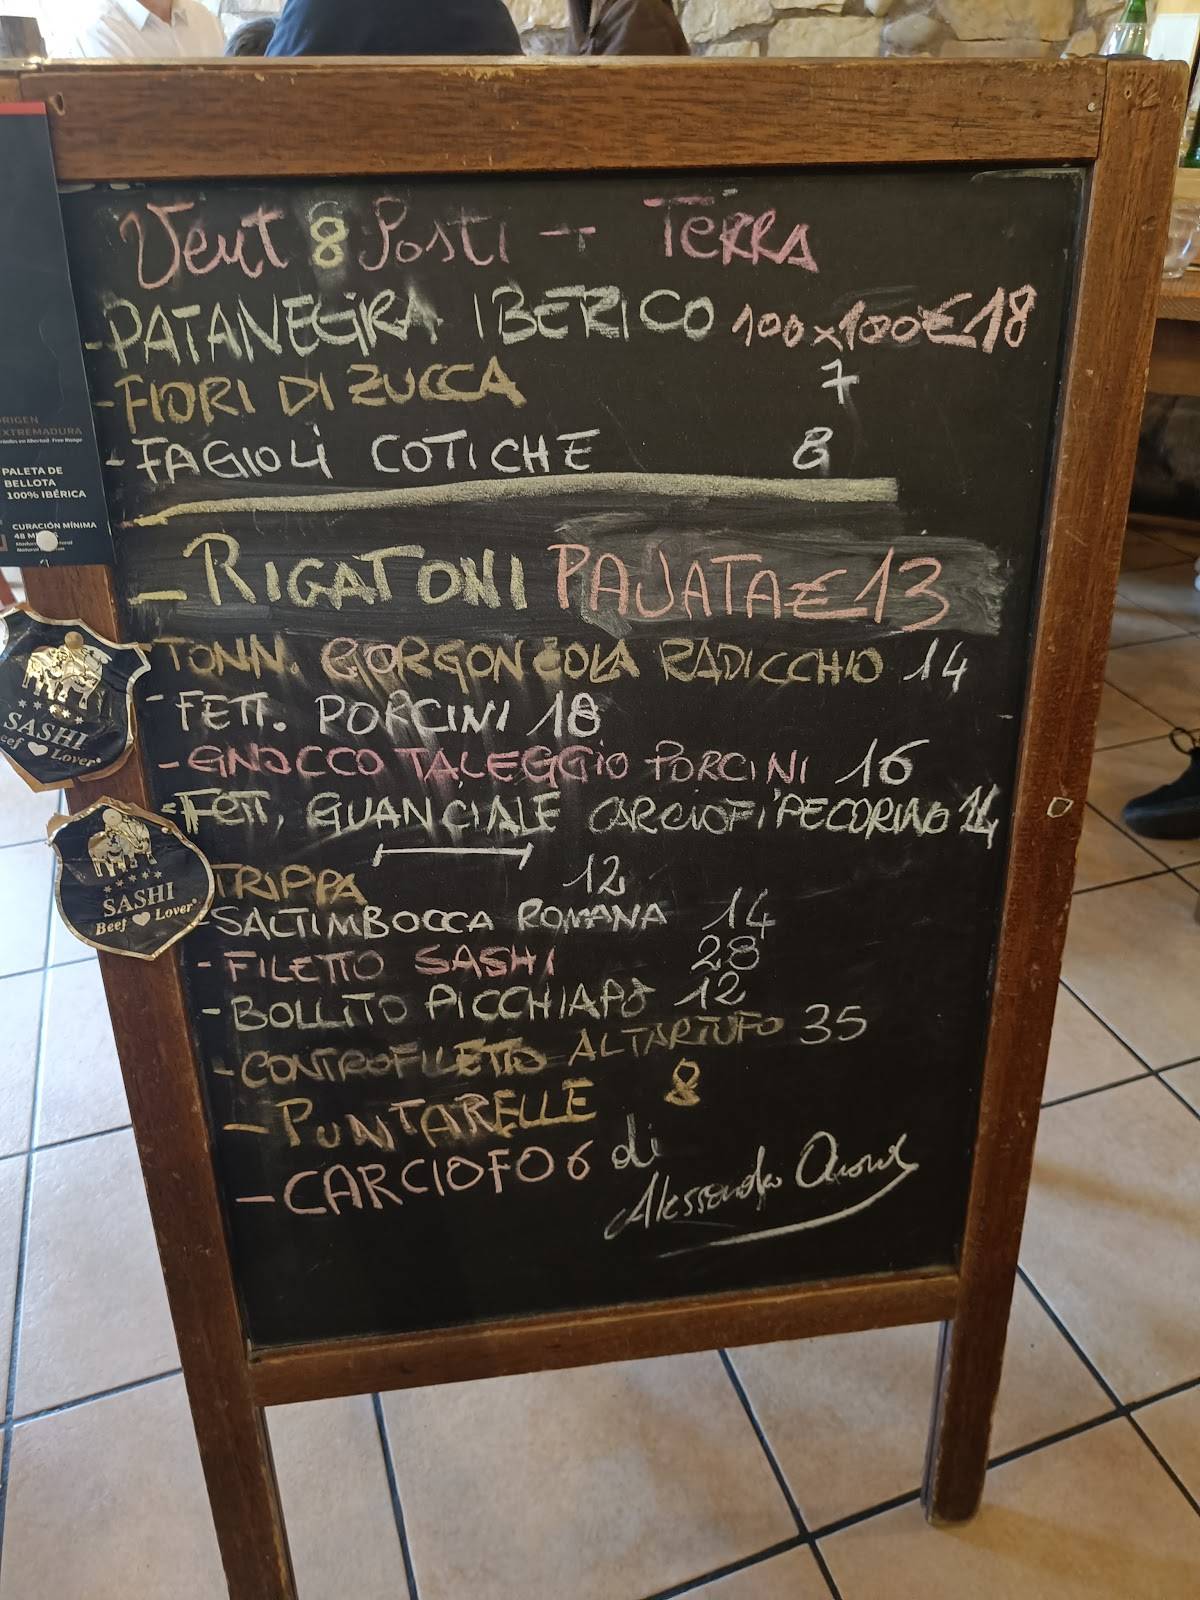 Vent 8 Posti - TERRA
- PATANEGRA IBERICO 100x100 € 18
- FIORI DI ZUCCA 7
- FAGIOLI COTICHE 8
- RIGATONI PAJATA € 13
- TONN. GORGONZOLA RADICCHIO 14
- FETT. PORCINI 18
- GNOCCO TALEGGIO PORCINI 16
- FETT. GUANCIALE CARCIOFI PECORINO 14
TRIPPA 12
- SALTIMBOCCA ROMANA 14
- FILETTO SASHI 28
- BOLLITO PICCHIAPO 12
- CONTROFILETTO AL TARTUFO 35
- PUNTARELLE 8
- CARCIOFO 6 di
Alessandro
ORIGEN
EXTREMADURA
PALETA DE
BELLOTA
100% IBÉRICA
CURACIÓN MÍNIMA
48
SASHI
Beef Lover
SASHI
Beef Lover